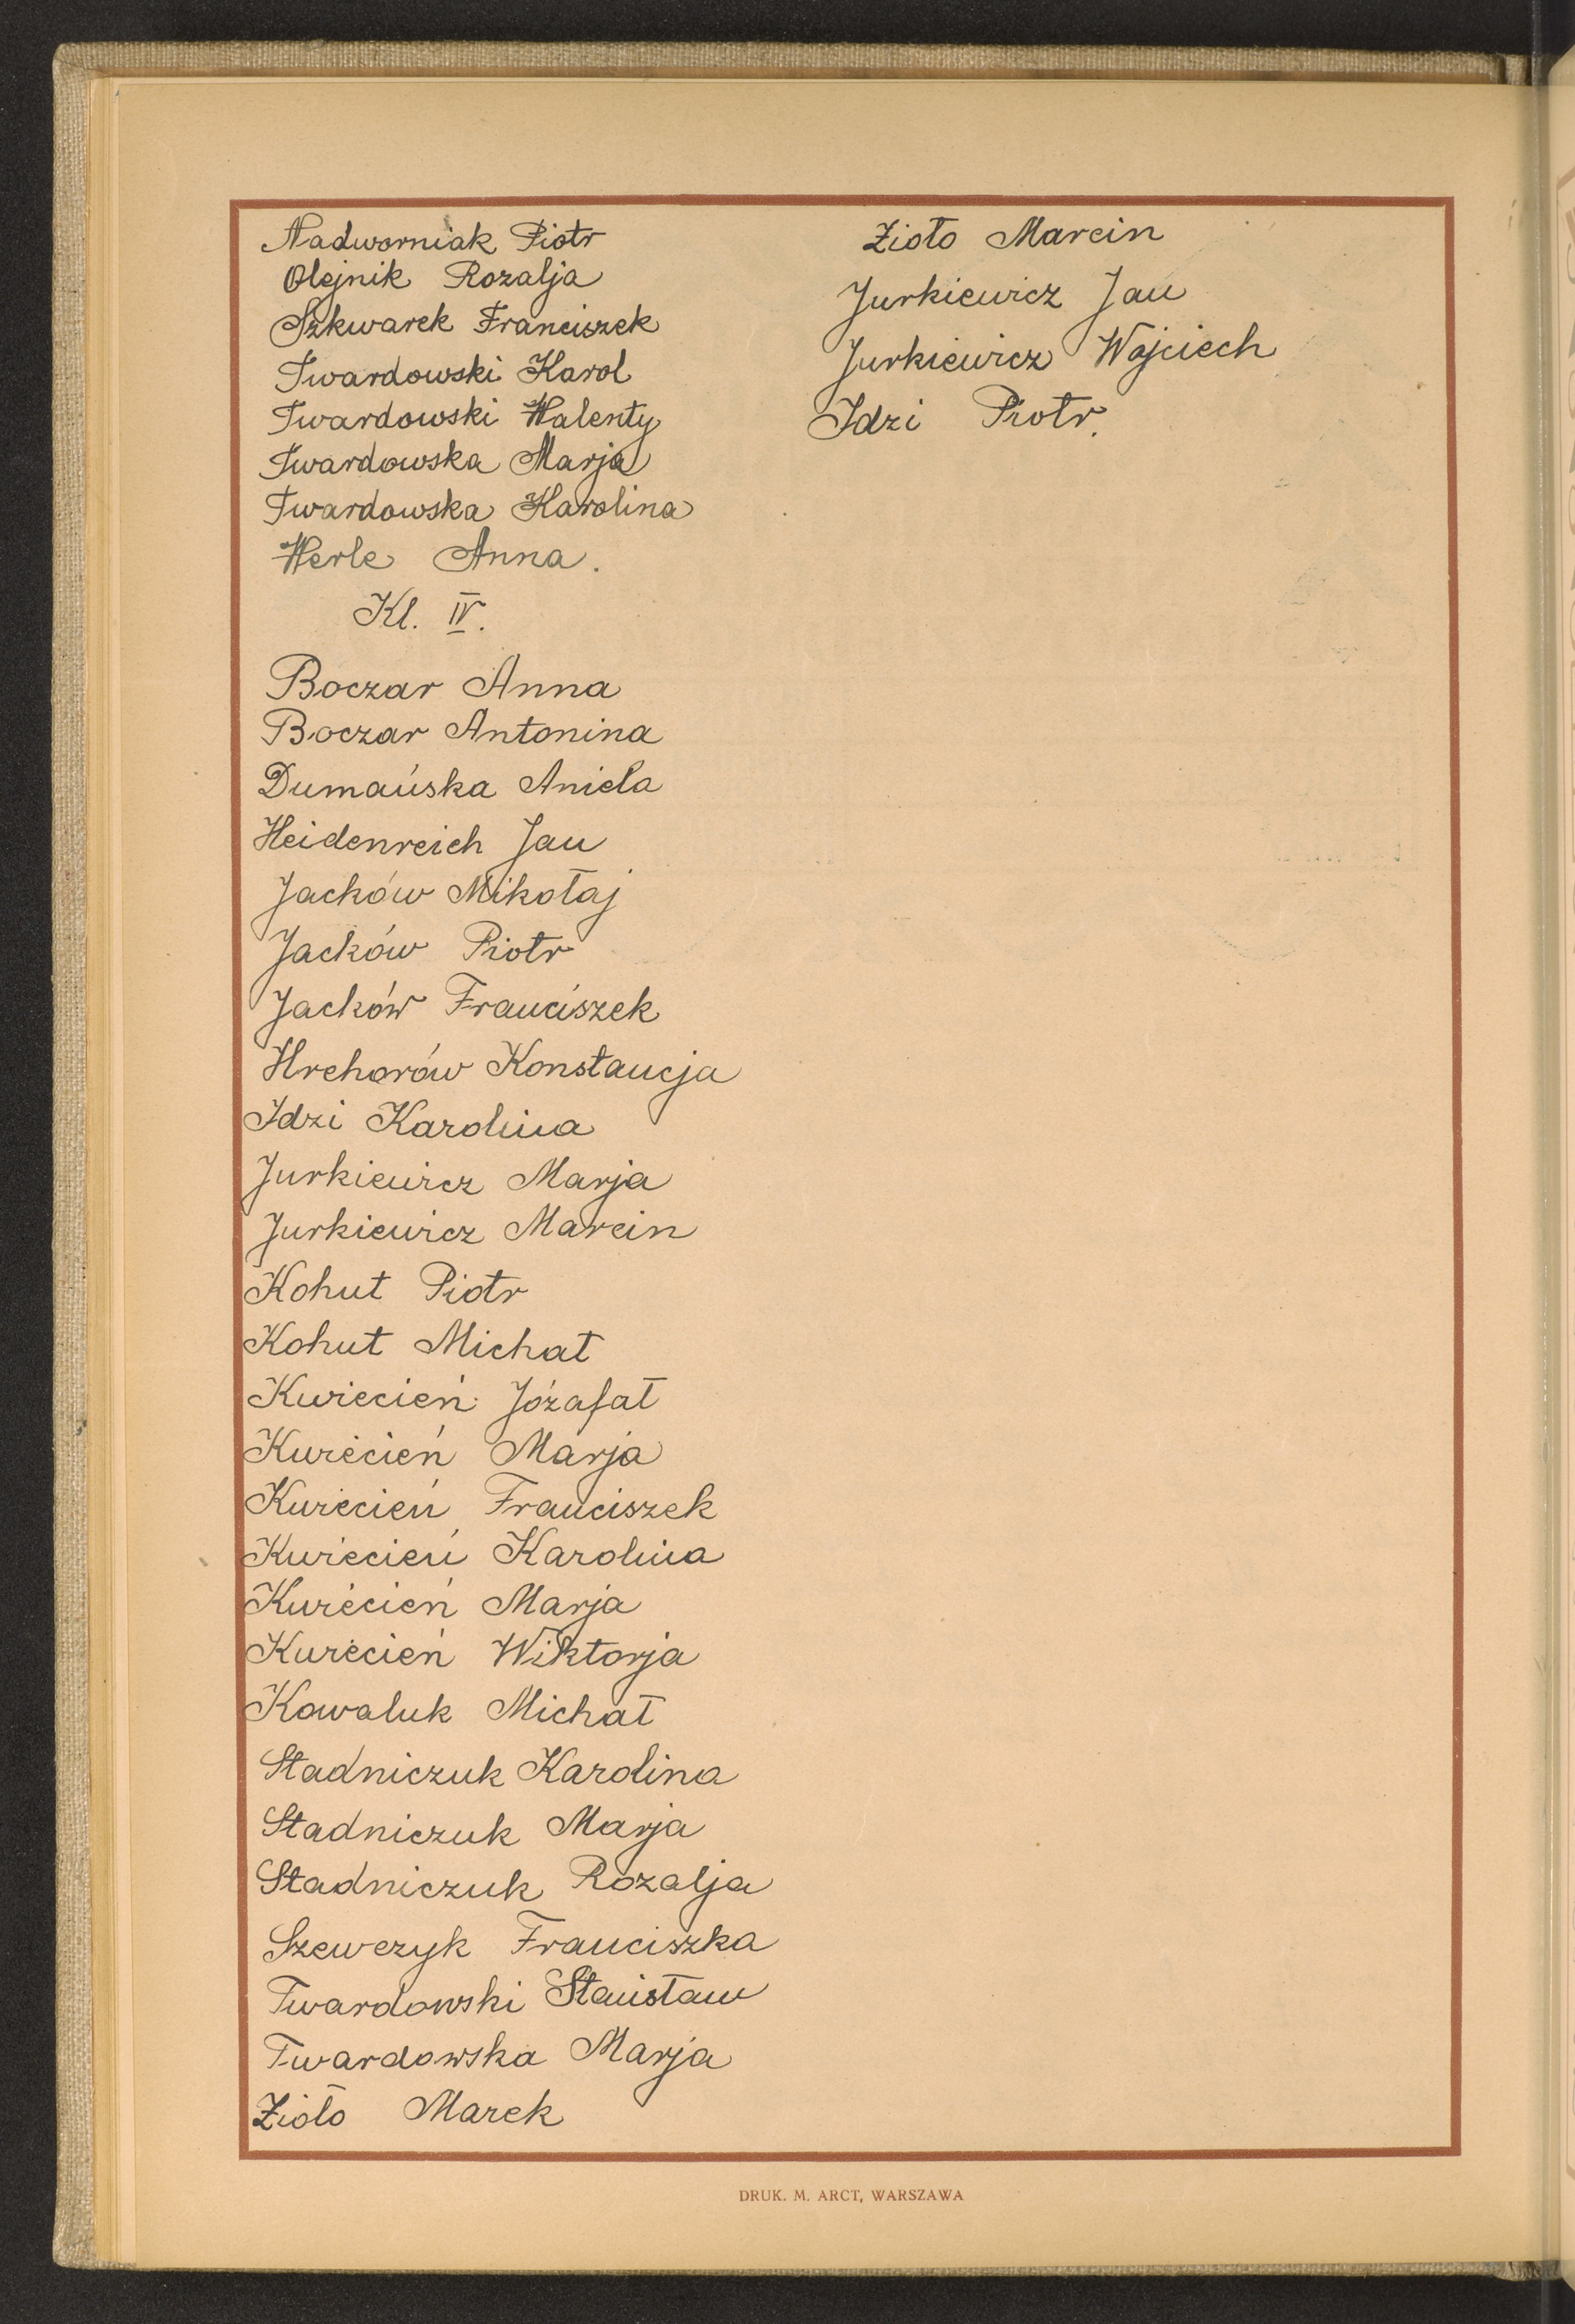 Nadworniak Piotr
Olejnik Rozalja
Szkwarek Franciszek
Twardowski Karol
Twardowski Walenty
Twardowska Marja
Twardowska Karolina
Werle Anna.
Kl. IV.
Boczar Anna
Boczar Antonina
Dumańska Aniela
Heidenreich Jan
Jacków Mikołaj
Jacków Piotr
Jacków Franciszek
Hrehorów Konstancja
Idzi Karolina
Jurkiewicz Marja
Jurkiewicz Marcin
Kohut Piotr
Kohut Michał
Kwiecień Józafat
Kwiecień Marja
Kwiecień Franciszek
Kwiecień Karolina
Kwiecień Marja
Kwiecień Wiktorja
Kowaluk Michał
Stadniczuk Karolina
Stadniczuk Marja
Stadniczuk Rozalja
Szewczyk Franciszka
Twardowski Stanisław
Twardowska Marja
Zioło Marek
Zioło Marcin
Jurkiewicz Jan
Jurkiewicz Wojciech
Idzi Piotr.
DRUK. M. ARCT, WARSZAWA